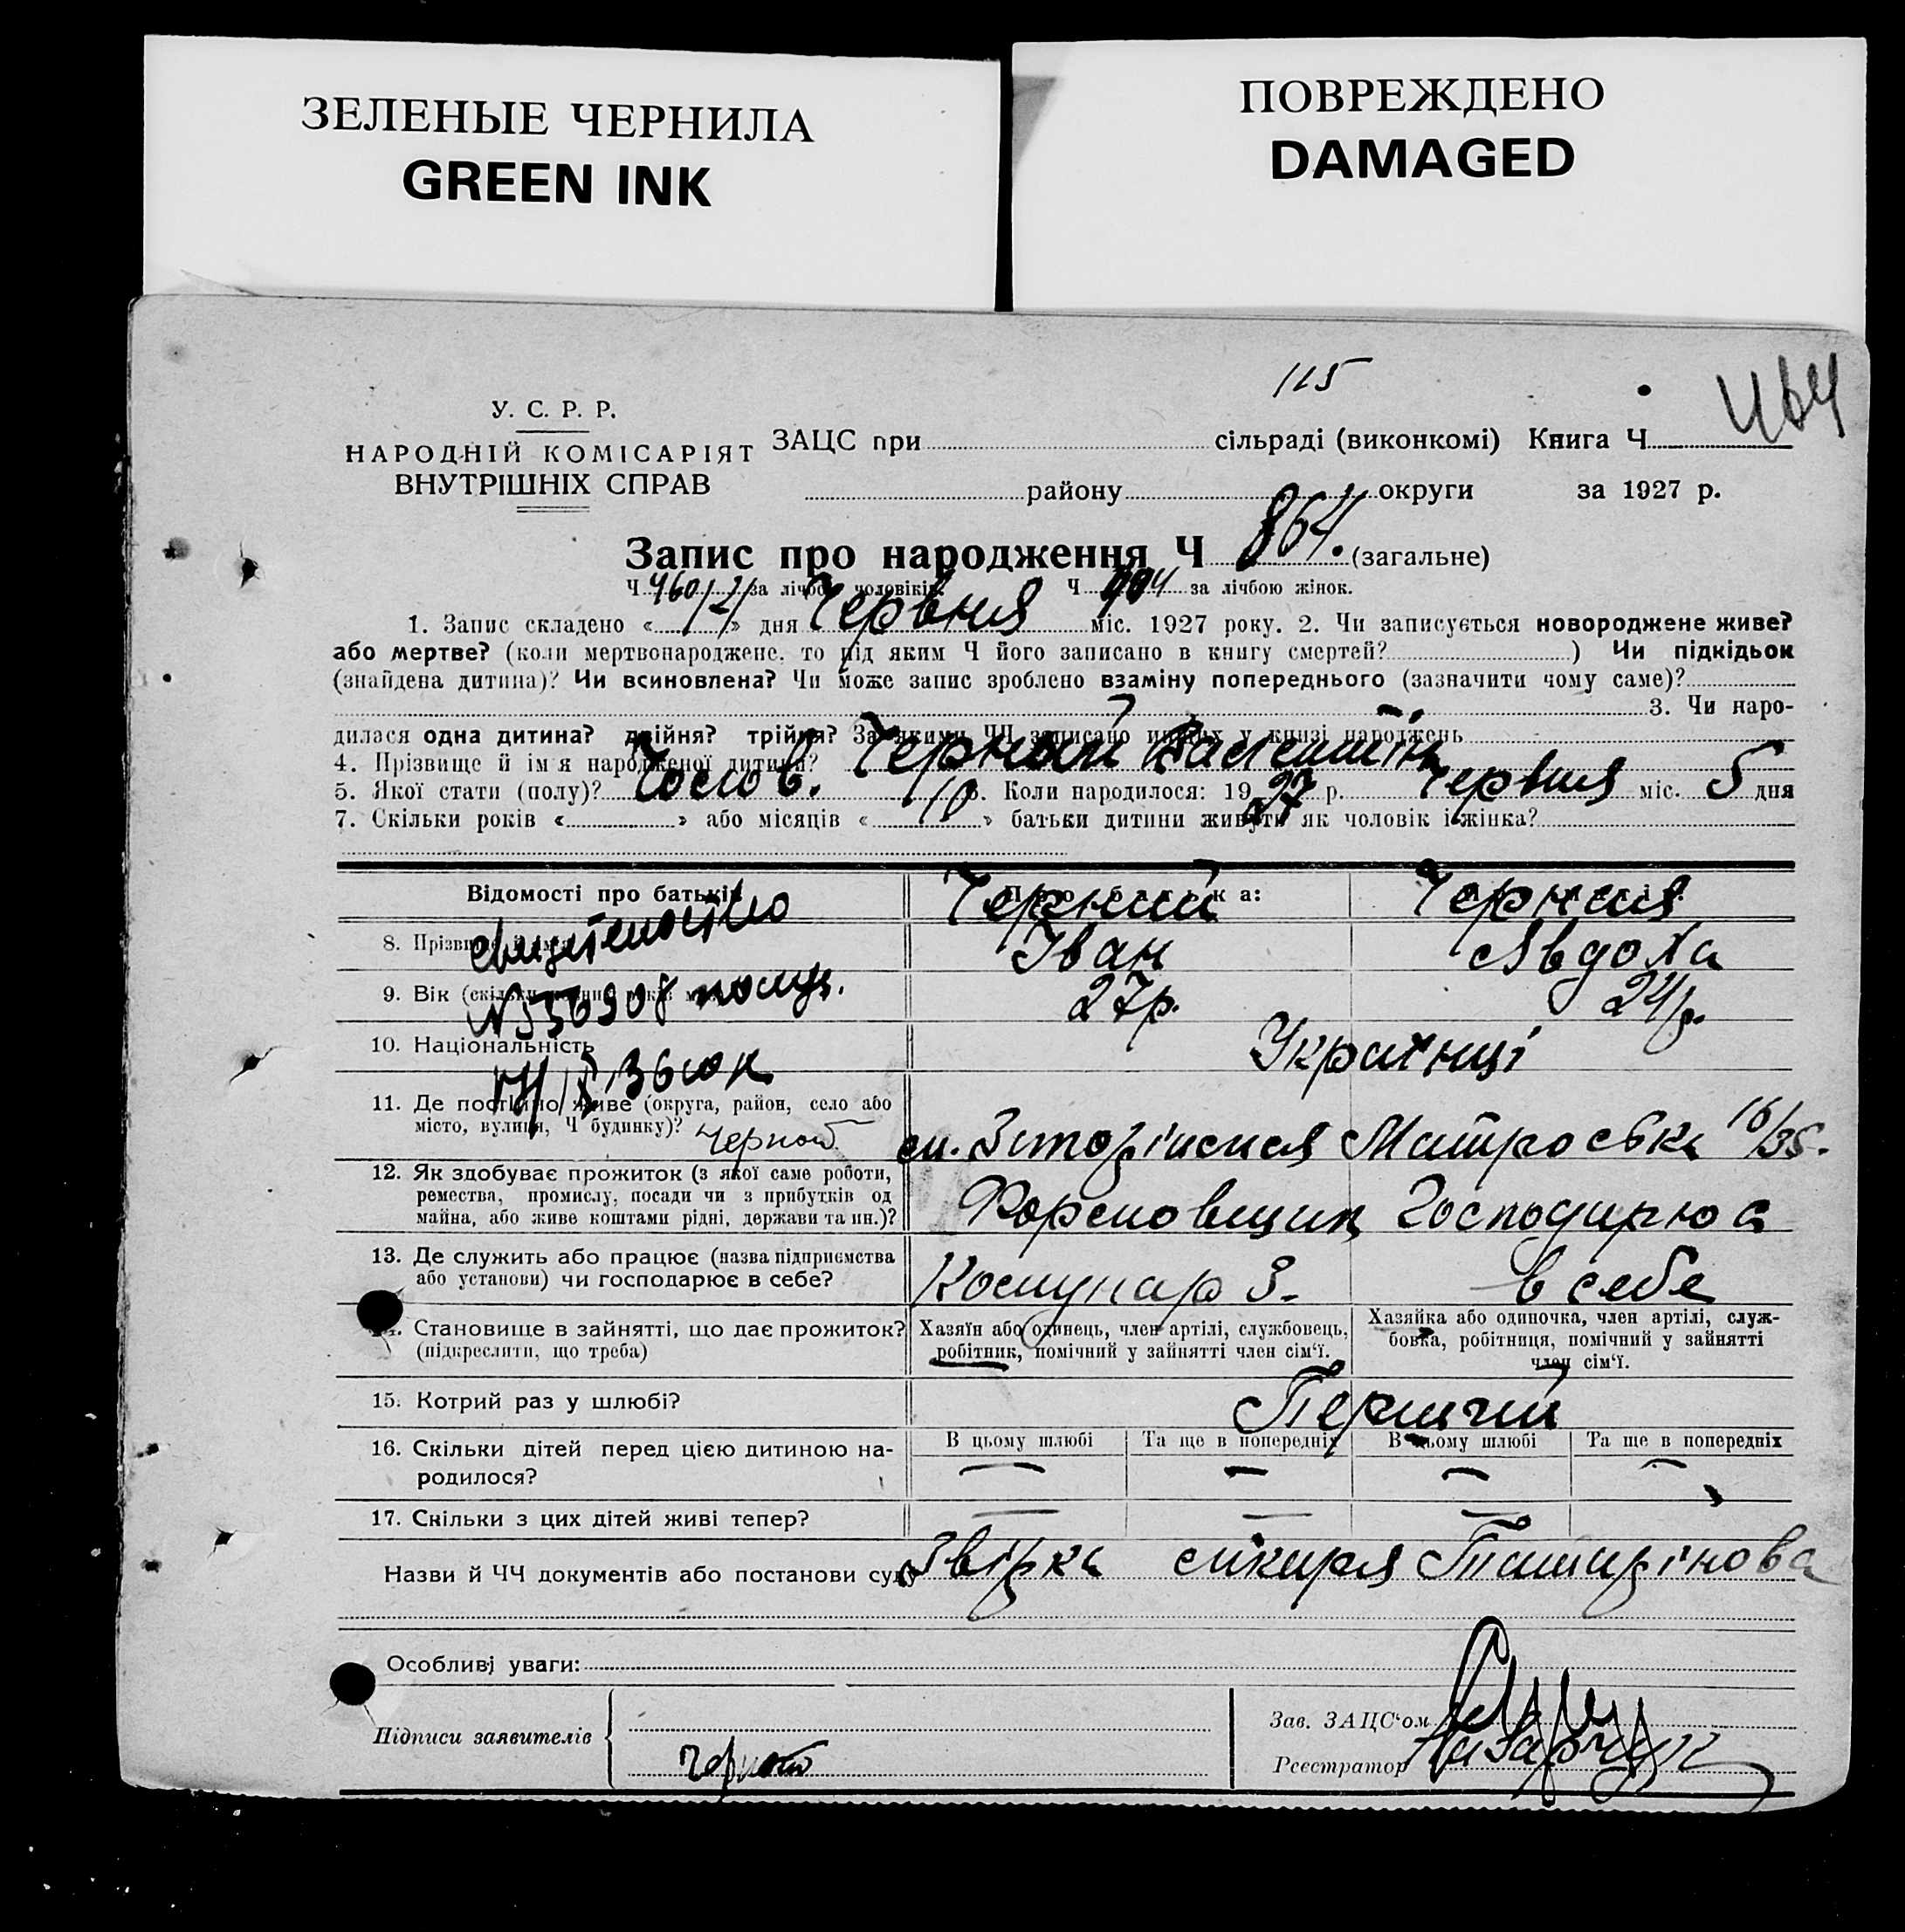 ЗЕЛЕНЫЕ ЧЕРНИЛА
GREEN INK
ПОВРЕЖДЕНО
DAMAGED
115
464
У. С. Р. Р.
НАРОДНІЙ КОМІСАРІЯТ
ВНУТРІШНІХ СПРАВ
ЗАЦС при сільраді (виконкомі) Книга Ч
району округи за 1927 р.
Запис про народження Ч 864. (загальне)
Ч 460 за лічбою чоловіків. Ч 404 за лічбою жінок.
1. Запис складено «21» дня Червня міс. 1927 року. 2. Чи записується новороджене живе?
або мертве? (коли мертвонароджене, то під яким Ч його записано в книгу смертей? ) Чи підкідьок
(знайдена дитина)? Чи всиновлена? Чи може запис зроблено взаміну попереднього (зазначити чому саме)?
3. Чи наро-
дилася одна дитина? двійня? трійня? За якими ЧЧ записано инших у книзі народжень
4. Прізвище й ім'я народженої дитини? Черный Валентін
5. Якої стати (полу)? Чолов. 6. Коли народилося: 1927 р. Червня міс. 5 дня
7. Скільки років « » або місяців «10» батьки дитини живуть як чоловік і жінка?
Відомості про батьків Про батька:
Черний Черная
8. Прізвище й ім'я Іван Явдоха
свидетельство
9. Вік 27р. 24р.
10. Національність Українці
11. Де постійно живе (округа, район, село або
місто, вулиця, Ч будинку)? Матроська 16/35.
12. Як здобуває прожиток (з якої саме роботи,
ремества, промислу, посади чи з прибутків од
майна, або живе коштами рідні, держави та ин.)?
Формовщик Господарює
13. Де служить або працює (назва підприємства
або установи) чи господарює в себе?
Комунар З. в себе
14. Становище в зайнятті, що дає прожиток?
(підкреслити, що треба)
Хазяїн або одинець, член артілі, службовець,
робітник, помічний у зайнятті член сім'ї.
Хазяйка або одиночка, член артілі, служ-
бовка, робітниця, помічний у зайнятті
член сім'ї.
15. Котрий раз у шлюбі? Перший
16. Скільки дітей перед цією дитиною на-
родилося?
В цьому шлюбі Та ще в попередніх В цьому шлюбі Та ще в попередніх
17. Скільки з цих дітей живі тепер?
Назви й ЧЧ документів або постанови суду
Особливі уваги:
Підписи заявителів
Зав. ЗАЦС'ом
Реєстратор